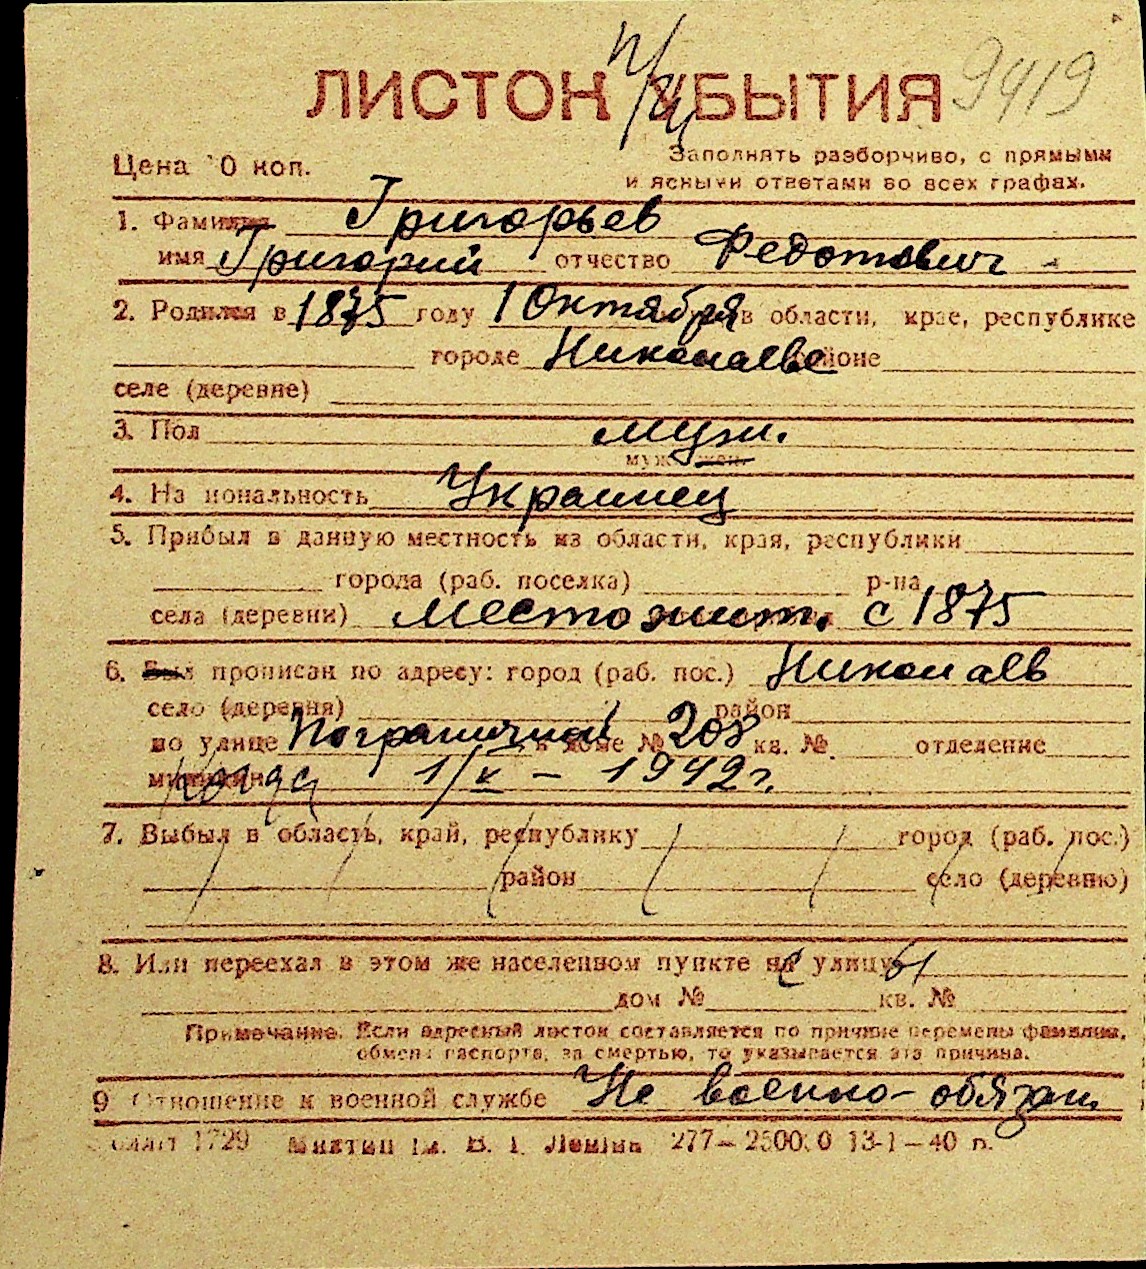 9419
ЛИСТОК УБЫТИЯ
Цена 10 коп.
Заполнять разборчиво, с прямыми
и ясными ответами во всех графах.
1. Фамилия Григорьев
имя Григорий отчество Федотович
2. Родился в 1875 году 1 Октября в области, крае, республике
городе Николаеве районе
селе (деревне)
3. Пол муж.
муж. жен.
4. Национальность Украинец
5. Прибыл в данную местность из области, края, республики
города (раб. поселка) р-на
села (деревни) Место жит. с 1875
6. Был прописан по адресу: город (раб. пос.) Николаев
село (деревня) район
по улице Пограничной в доме № 208 кв. № отделение
милиции когда 1/X – 1942 г.
7. Выбыл в область, край, республику город (раб. пос.)
район село (деревню)
8. Или переехал в этом же населенном пункте на улицу
дом № кв. №
Примечание. Если адресный листок составляется по причине перемены фамилии,
обмена паспорта, за смертью, то указывается эта причина.
9 Отношение к военной службе Не военно-обязан.
1729 им. В. І. Леніна 277– 250000 13-1–40 р.